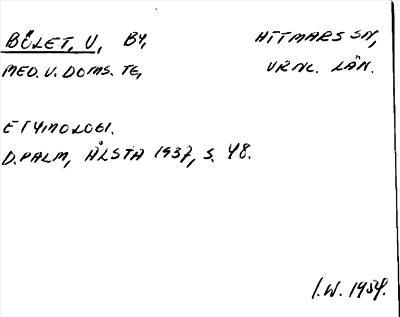 BÖLET, V, BY, HITMARS SN,
MED. V. DOMS. TE, VRML. LÄN.
ETYMOLOGI.
D. PALM, ÅLSTA 1937, S. 48.
I.W. 1954.